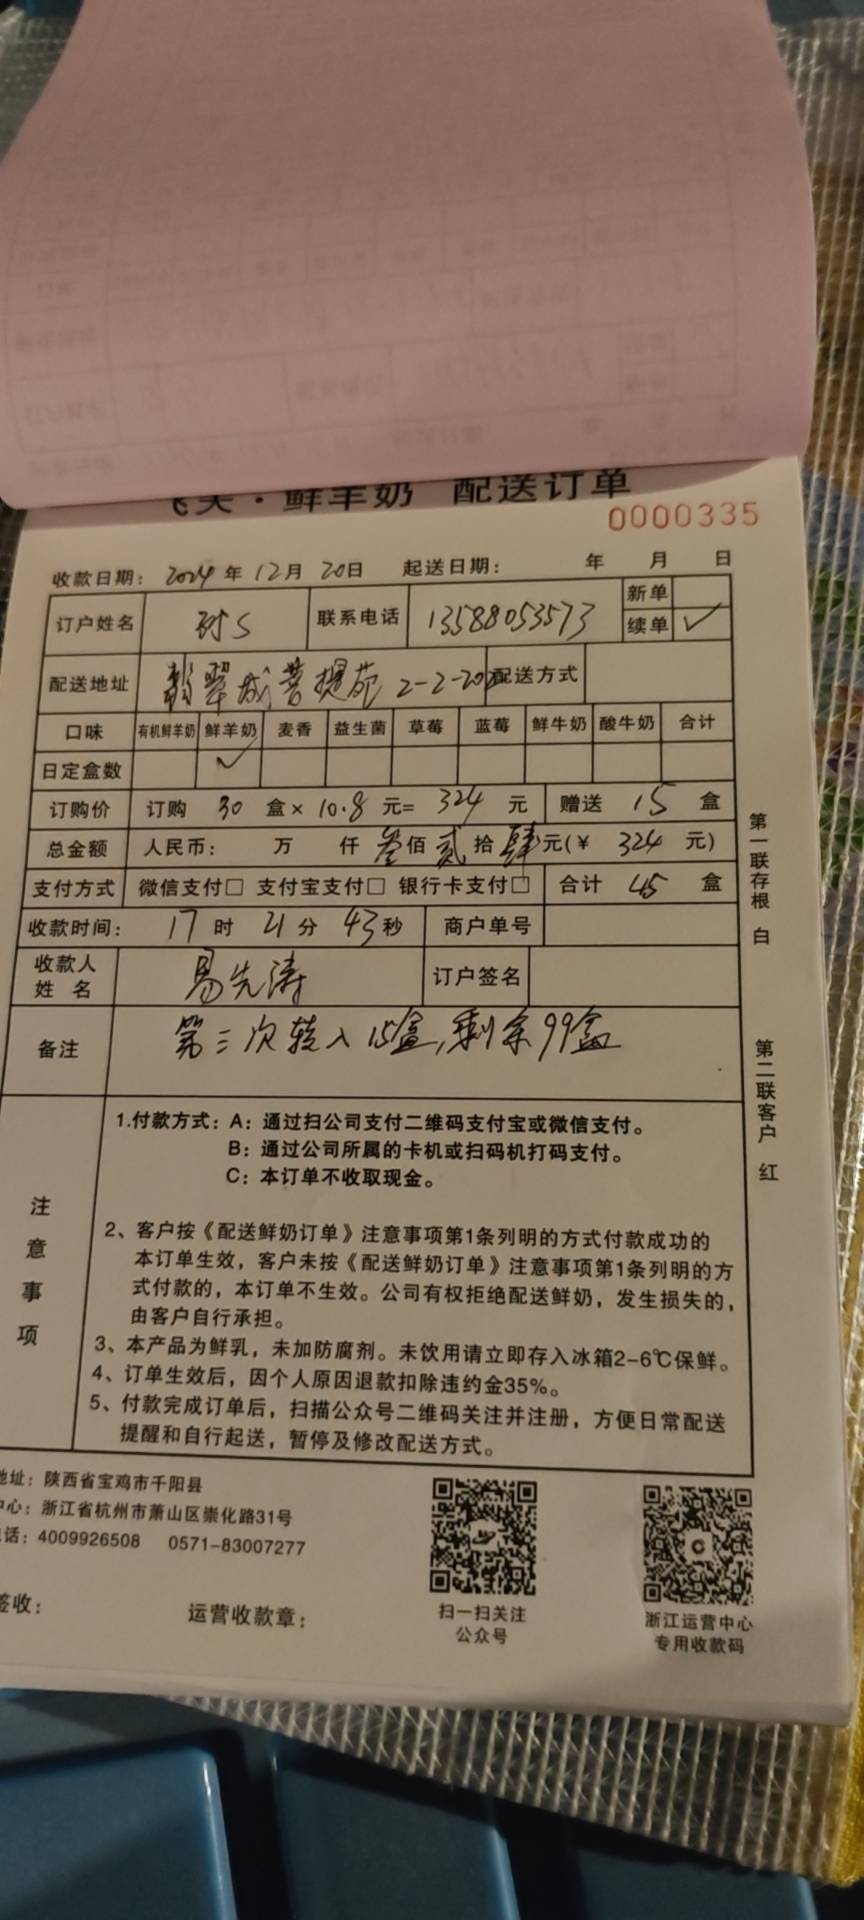 飞天·鲜羊奶 配送订单
0000335
收款日期: 2024 年 12月 20日 起送日期: 年 月 日
订户姓名 联系电话 13588053573 新单
续单 ✓
配送地址 翡翠城菩提苑 2-2-202 配送方式
口味 有机鲜羊奶 鲜羊奶 麦香 益生菌 草莓 蓝莓 鲜牛奶 酸牛奶 合计
日定盒数 ✓
订购价 订购 30 盒× 10.8 元= 324 元 赠送 15 盒
总金额 人民币: 万 仟 叁佰 贰 拾 肆元(¥ 324 元)
支付方式 微信支付□ 支付宝支付□ 银行卡支付□ 合计 45 盒
收款时间: 17 时 21 分 43秒 商户单号
收款人姓名 易先涛 订户签名
备注 第三次转入15盒,剩余99盒
第一联存根 白
第二联客户 红
注意事项
1.付款方式:A:通过扫公司支付二维码支付宝或微信支付。
B:通过公司所属的卡机或扫码机打码支付。
C:本订单不收取现金。
2、客户按《配送鲜奶订单》注意事项第1条列明的方式付款成功的
本订单生效,客户未按《配送鲜奶订单》注意事项第1条列明的方
式付款的,本订单不生效。公司有权拒绝配送鲜奶,发生损失的,
由客户自行承担。
3、本产品为鲜乳,未加防腐剂。未饮用请立即存入冰箱2-6℃保鲜。
4、订单生效后,因个人原因退款扣除违约金35%。
5、付款完成订单后,扫描公众号二维码关注并注册,方便日常配送
提醒和自行起送,暂停及修改配送方式。
地址:陕西省宝鸡市千阳县
中心:浙江省杭州市萧山区崇化路31号
电话:4009926508 0571-83007277
签收: 运营收款章:
扫一扫关注
公众号
浙江运营中心
专用收款码